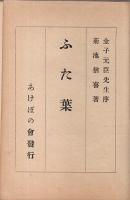 金子元臣先生序
菊池麴??著
ふた葉
あけぼの會發行